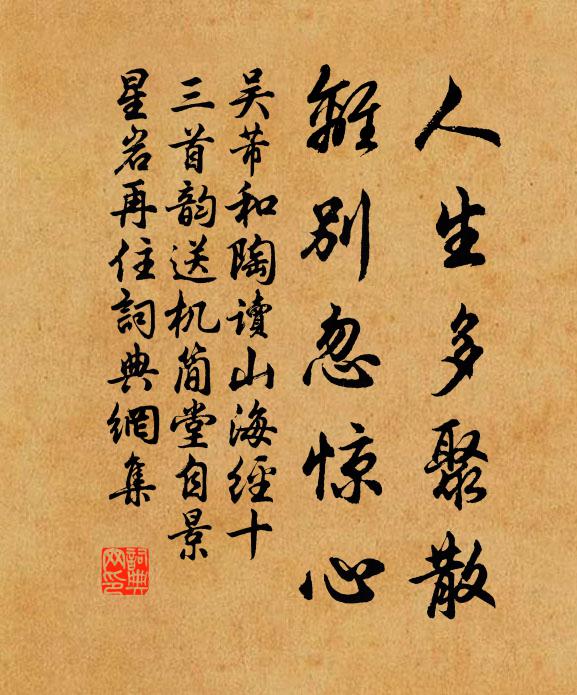 人生多聚散
離别忽惊心
吴芾和陶讀山海經十
三首韵送机简堂自景
星岩再住詞典網集
詞典网印